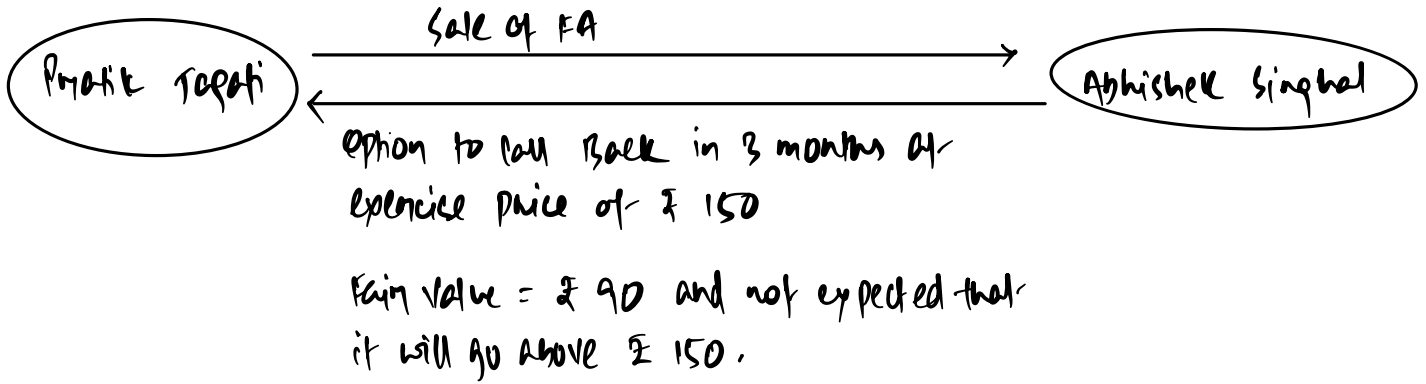 Sale of FA
Pratik Jagati
Abhishek Singhal
Option to Call Back in 3 months at
exercise price of ₹ 150
Fair value = ₹ 90 and not expected that
it will go above ₹ 150.